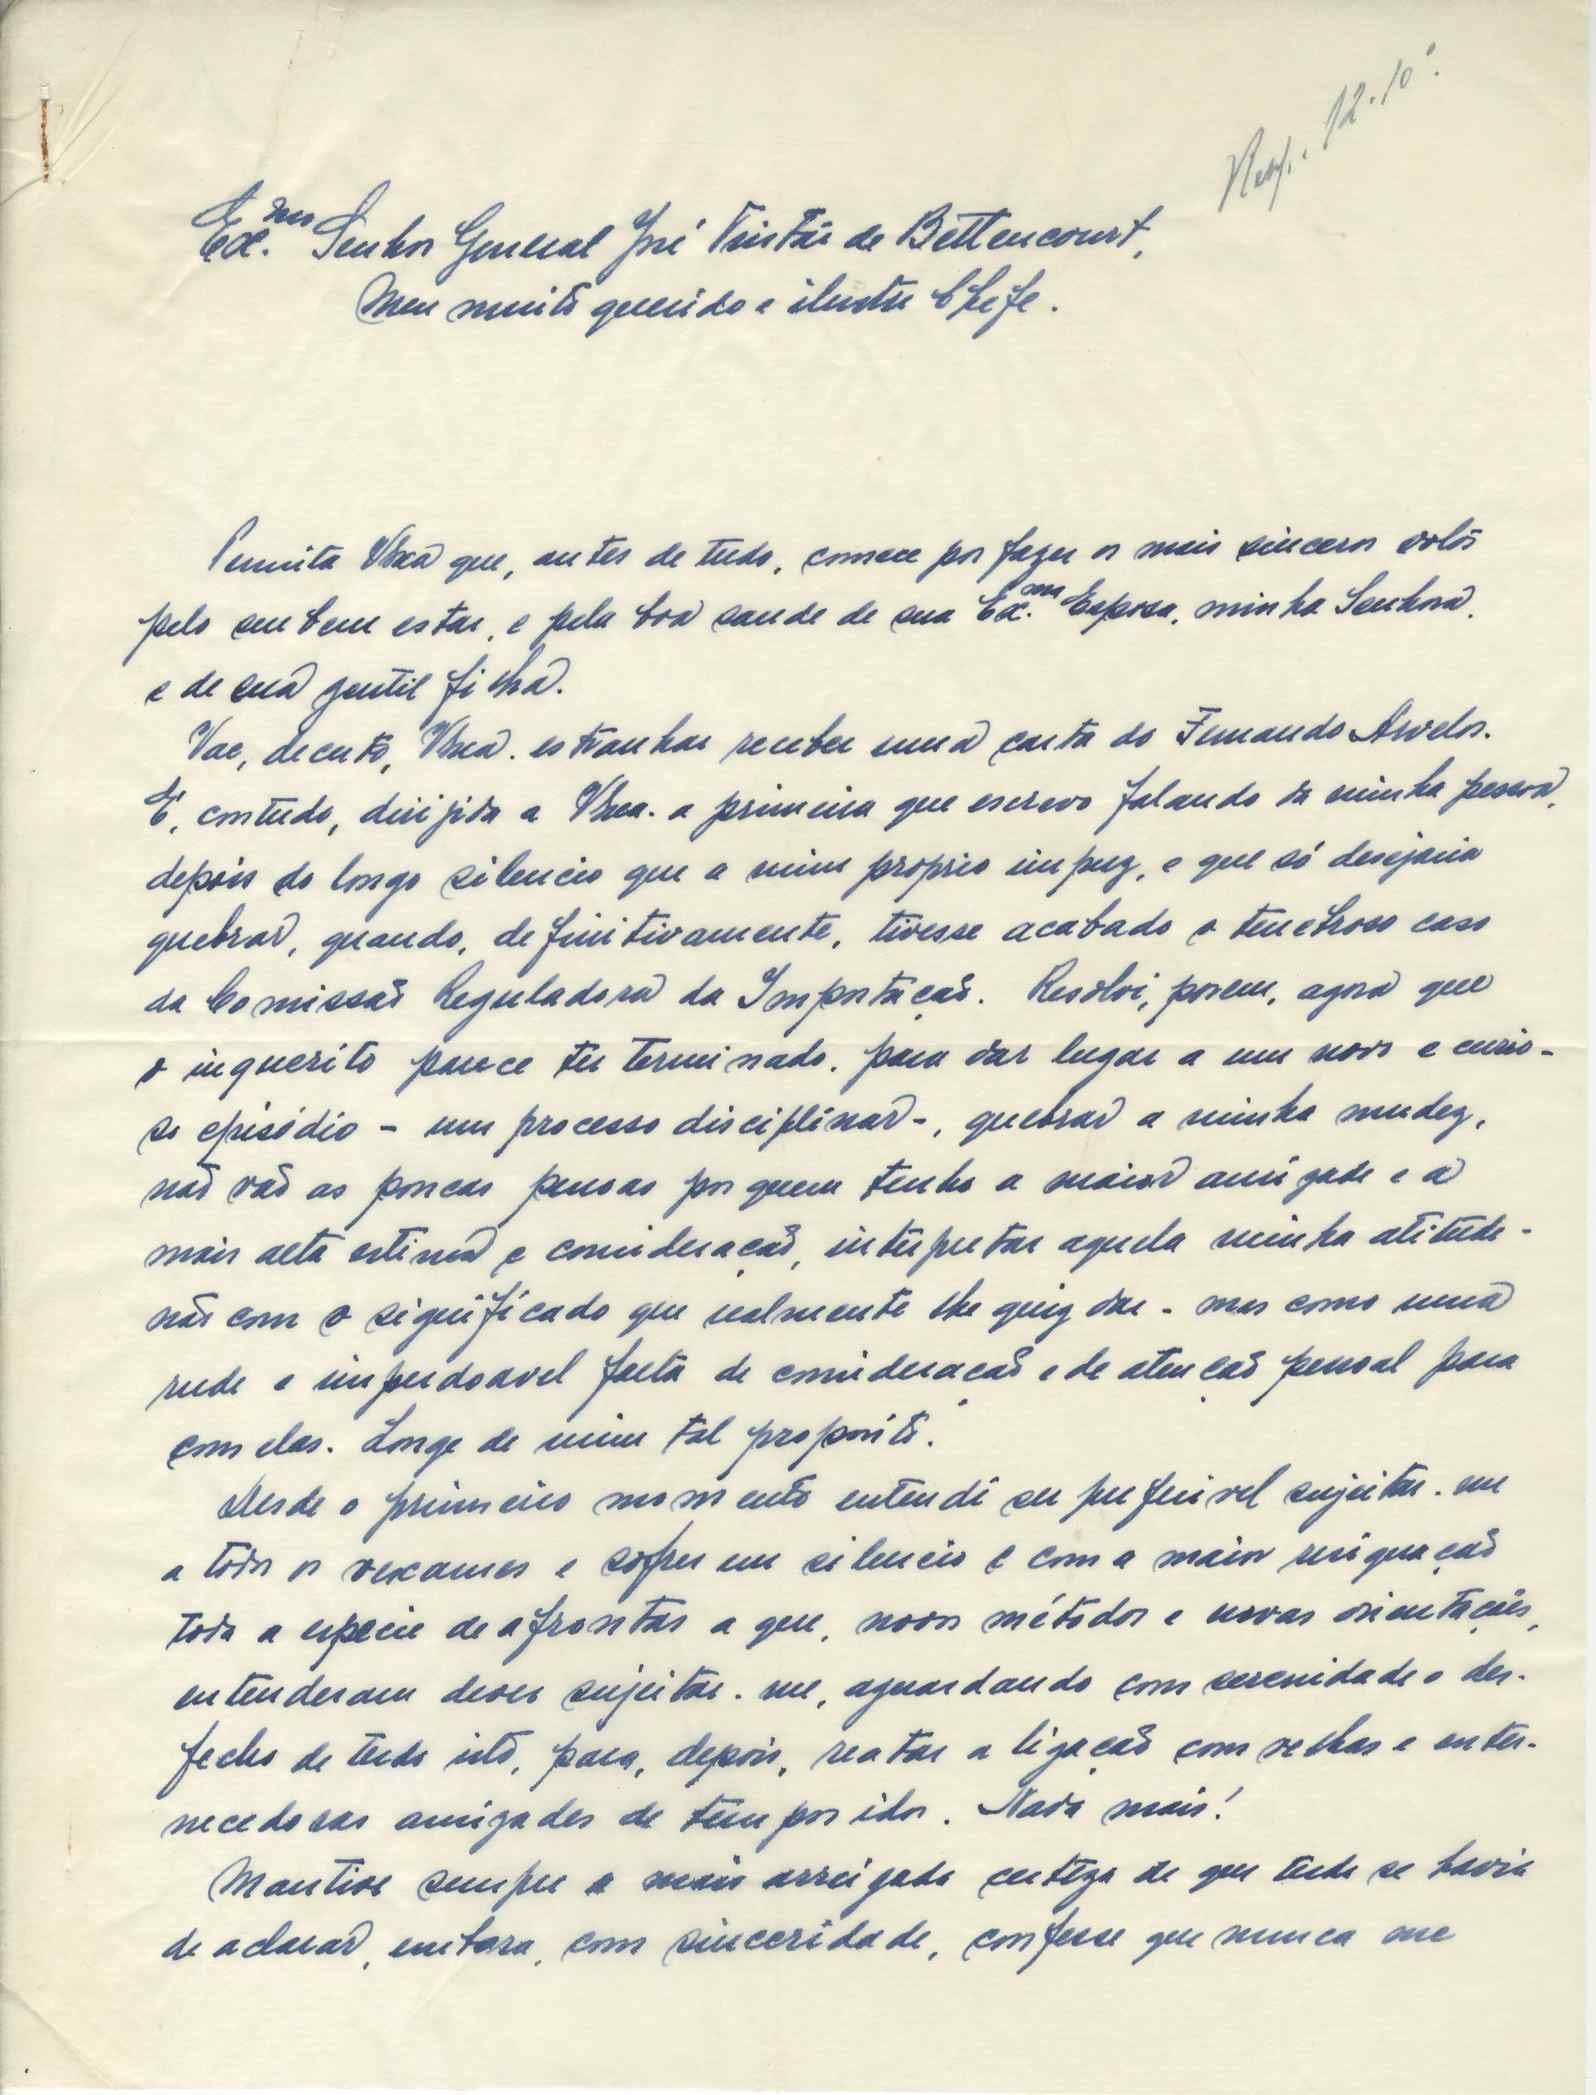 Resp. 12.10.
Ex.mo Senhor General José Tristão de Bettencourt,
Meu muito querido e ilustre Chefe.
Permita VExa que, antes de tudo, comece por fazer os mais sinceros votos
pelo seu bem estar, e pela boa saude de sua Ex.ma Esposa, minha Senhora,
e de sua gentil filha.
Vae, decerto, VExa. estranhar receber uma carta do Fernando Arvelos.
É, contudo, dirigida a VExa. a primeira que escrevo falando da minha pessoa,
depois do longo silencio que a mim proprio impuz, e que só desejaria
quebrar, quando, definitivamente, tivesse acabado o tenebroso caso
da Comissão Reguladora da Importação. Resolvi, porem, agora que
o inquerito parece ter terminado, para dar lugar a um novo e curio-
so episódio - um processo disciplinar -, quebrar a minha mudez,
não vão as poucas pessoas por quem tenho a maior amizade e a
mais alta estima e consideração, interpretar aquela minha atitude -
não com o significado que realmente lhe quiz dar - mas como uma
rude e imperdoavel falta de consideração e de atenção pessoal para
com elas. Longe de mim tal proposito.
Desde o primeiro momento entendi ser preferivel sujeitar-me
a todos os vexames e sofrer em silencio e com a maior resignação
toda a especie de afrontas a que, novos métodos e novas orientações,
entenderam dever sujeitar-me, aguardando com serenidade o des-
fecho de tudo isto, para, depois, reatar a ligação com velhas e enter-
necedoras amizades de tempos idos. Nada mais!
Mantive sempre a mais arreigada certeza de que tudo se havia
de aclarar, embora, com sinceridade, confesse que nunca me